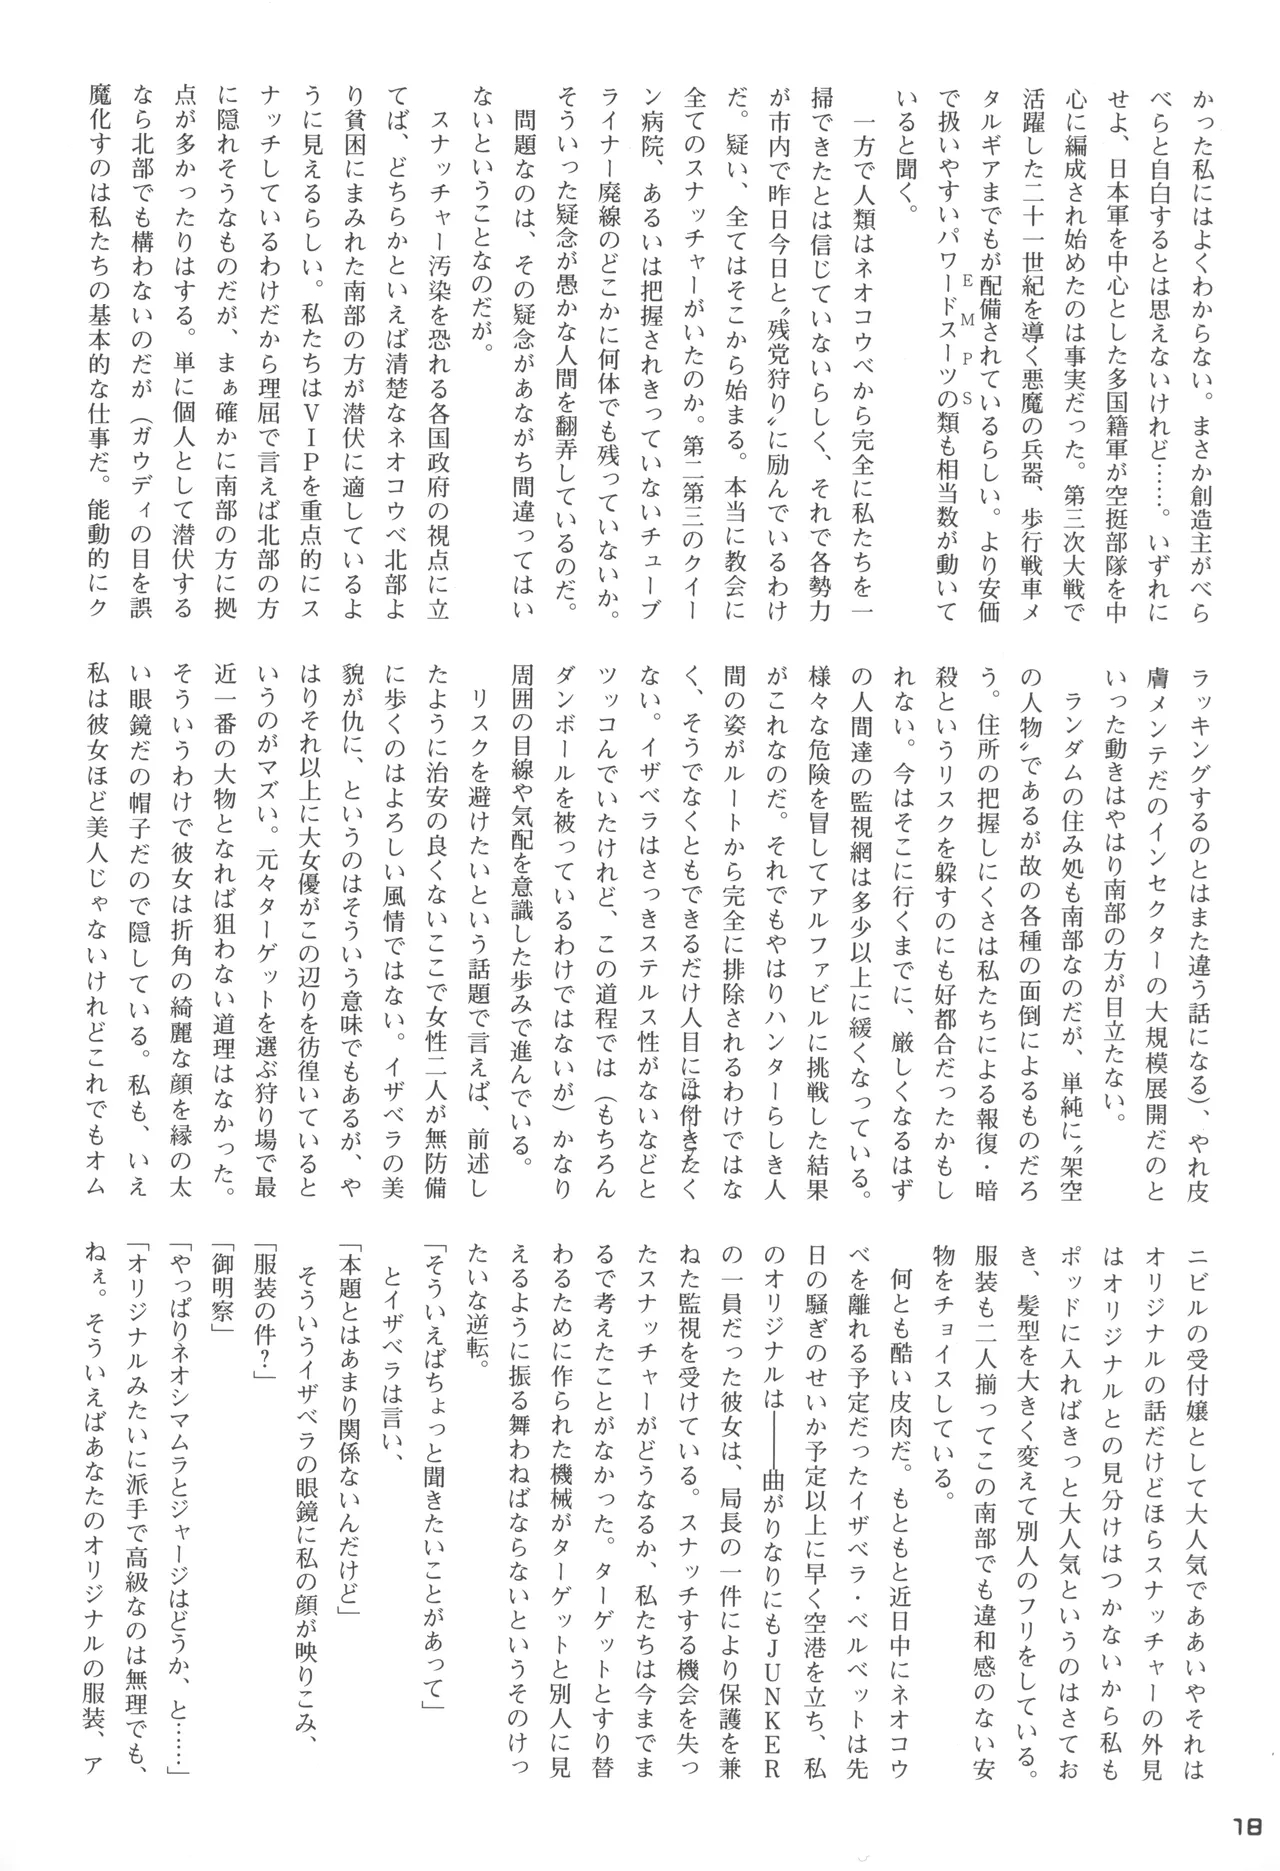 かった私にはよくわからない。まさか創造主がべら
べらと自白するとは思えないけれど……。いずれに
せよ、日本軍を中心とした多国籍軍が空挺部隊を中
心に編成され始めたのは事実だった。第三次大戦で
活躍した二十一世紀を導く悪魔の兵器、歩行戦車メ
タルギアまでもが配備されているらしい。より安価
で扱いやすいパワードスーツの類も相当数が動いて
EMPS
いると聞く。
一方で人類はネオコウベから完全に私たちを一
掃できたとは信じていないらしく、それで各勢力
が市内で昨日今日と〝残党狩り〟に励んでいるわけ
だ。疑い、全てはそこから始まる。本当に教会に
全てのスナッチャーがいたのか。第二第三のクイー
ン病院、あるいは把握されきっていないチューブ
ライナー廃線のどこかに何体でも残っていないか。
そういった疑念が愚かな人間を翻弄しているのだ。
問題なのは、その疑念があながち間違ってはい
ないということなのだが。
スナッチャー汚染を恐れる各国政府の視点に立
てば、どちらかといえば清楚なネオコウベ北部よ
り貧困にまみれた南部の方が潜伏に適しているよ
うに見えるらしい。私たちはVIPを重点的にス
ナッチしているわけだから理屈で言えば北部の方
に隠れそうなものだが、まぁ確かに南部の方に拠
点が多かったりはする。単に個人として潜伏する
なら北部でも構わないのだが（ガウディの目を誤
魔化すのは私たちの基本的な仕事だ。能動的にク
ラッキングするのとはまた違う話になる）、やれ皮
膚メンテだのインセクターの大規模展開だのと
いった動きはやはり南部の方が目立たない。
ランダムの住み処も南部なのだが、単純に〝架空
の人物〟であるが故の各種の面倒によるものだろ
う。住所の把握しにくさは私たちによる報復・暗
殺というリスクを躱すのにも好都合だったかもし
れない。今はそこに行くまでに、厳しくなるはず
の人間達の監視網は多少以上に緩くなっている。
様々な危険を冒してアルファビルに挑戦した結果
がこれなのだ。それでもやはりハンターらしき人
間の姿がルートから完全に排除されるわけではな
く、そうでなくともできるだけ人目には付きたく
ない。イザベラはさっきステルス性がないなどと
ツッコんでいたけれど、この道程では（もちろん
ダンボールを被っているわけではないが）かなり
周囲の目線や気配を意識した歩みで進んでいる。
リスクを避けたいという話題で言えば、前述し
たように治安の良くないここで女性二人が無防備
に歩くのはよろしい風情ではない。イザベラの美
貌が仇に、というのはそういう意味でもあるが、や
はりそれ以上に大女優がこの辺りを彷徨いていると
いうのがマズい。元々ターゲットを選ぶ狩り場で最
近一番の大物となれば狙わない道理はなかった。
そういうわけで彼女は折角の綺麗な顔を縁の太
い眼鏡だの帽子だので隠している。私も、いえ
私は彼女ほど美人じゃないけれどこれでもオム
ニビルの受付嬢として大人気でああいやそれは
オリジナルの話だけどほらスナッチャーの外見
はオリジナルとの見分けはつかないから私も
ポッドに入ればきっと大人気というのはさてお
き、髪型を大きく変えて別人のフリをしている。
服装も二人揃ってこの南部でも違和感のない安
物をチョイスしている。
何とも酷い皮肉だ。もともと近日中にネオコウ
ベを離れる予定だったイザベラ・ベルベットは先
日の騒ぎのせいか予定以上に早く空港を立ち、私
のオリジナルは――曲がりなりにもJUNKER
の一員だった彼女は、局長の一件により保護を兼
ねた監視を受けている。スナッチする機会を失っ
たスナッチャーがどうなるか、私たちは今までま
るで考えたことがなかった。ターゲットとすり替
わるために作られた機械がターゲットと別人に見
えるように振る舞わねばならないというそのけっ
たいな逆転。
「そういえばちょっと聞きたいことがあって」
とイザベラは言い、
「本題とはあまり関係ないんだけど」
そういうイザベラの眼鏡に私の顔が映りこみ、
「服装の件？」
「御明察」
「やっぱりネオシマムラとジャージはどうか、と……」
「オリジナルみたいに派手で高級なのは無理でも、
ねぇ。そういえばあなたのオリジナルの服装、ア
18